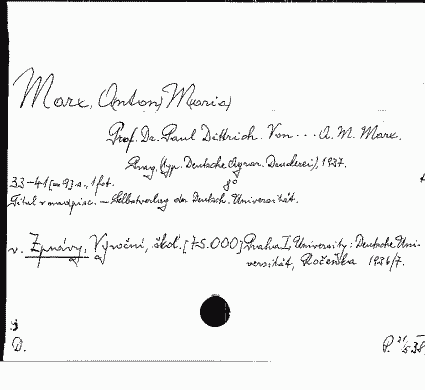 Marx, Anton M(aria)
Prof. Dr. Paul Dittrich. Von ... A. M. Marx.
Prag, (typ. Deutsche Agrar. Druckerei), 1937.
33-41 [= 9] s., 1 fot. 8°
Titul v nadpisc. - Selbstverlag der Deutsch. Universität.
v. Zprávy, Výroční, škol. [75.000] Praha I, University: Deutsche Uni-
versität, Ročenka 1936/7.
D.